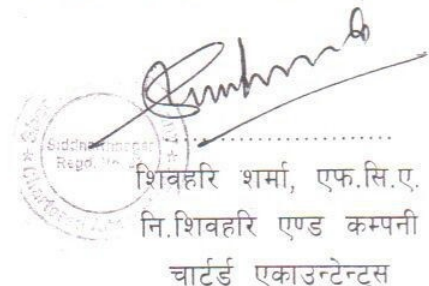 Siddharthnagar
Regd. No.
शिवहरि शर्मा, एफ.सि.ए.
नि.शिवहरि एण्ड कम्पनी
चार्टर्ड एकाउन्टेन्टस